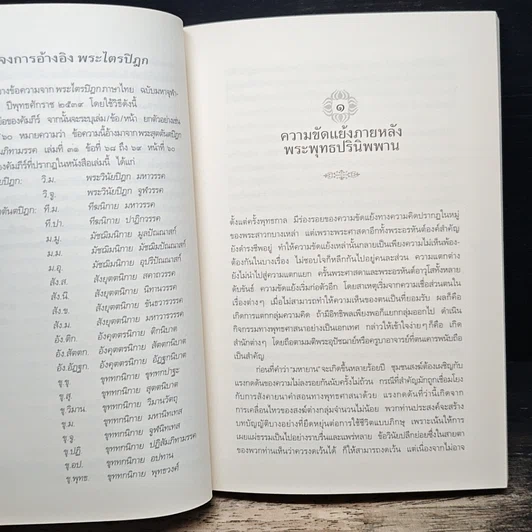 จงการอ้างอิง พระไตรปิฎก
างข้อความจาก พระไตรปิฎกภาษาไทย ฉบับมหาจุฬา-
ปีพุทธศักราช ๒๕๓๙ โดยใช้วิธีดังนี้
อของคัมภีร์ จากนั้นจะระบุเล่ม/ข้อ/หน้า ยกตัวอย่างเช่น
๖๐ หมายความว่า ข้อความนี้อ้างมาจากพระสุตตันตปิฎก
ภิทามรรค เล่มที่ ๓๑ ข้อที่ ๖๘ ถึง ๖๙ หน้าที่ ๖๐
งคัมภีร์ที่ปรากฏในหนังสือเล่มนี้ ได้แก่
ยปิฎก: วิ.ม. พระวินัยปิฎก มหาวรรค
วิ.จู. พระวินัยปิฎก จูฬวรรค
ตตันตปิฎก: ที.ม. ทีฆนิกาย มหาวรรค
ที.ปา. ทีฆนิกาย ปาฏิกวรรค
ม.มู. มัชฌิมนิกาย มูลปัณณาสก์
ม.ม. มัชฌิมนิกาย มัชฌิมปัณณาสก์
ม.อุ. มัชฌิมนิกาย อุปริปัณณาสก์
สัง.ส. สังยุตตนิกาย สคาถวรรค
สัง.นิ. สังยุตตนิกาย นิทานวรรค
สัง.ข. สังยุตตนิกาย ขันธวารวรรค
สัง.ม. สังยุตตนิกาย มหาวารวรรค
อัง.ติก. อังคุตตรนิกาย ติกนิบาต
อัง.สัตตก. อังคุตตรนิกาย สัตตกนิบาต
อัง.อัฏฐก. อังคุตตรนิกาย อัฏฐกนิบาต
ขุ.ขุ. ขุททกนิกาย ขุททกปาฐะ
ขุ.สุ. ขุททกนิกาย สุตตนิบาต
ขุ.วิมาน. ขุททกนิกาย วิมานวัตถุ
ขุ.ม. ขุททกนิกาย มหานิทเทส
ขุ.จู. ขุททกนิกาย จูฬนิทเทส
ขุ.ปฏิ. ขุททกนิกาย ปฏิสัมภิทามรรค
ขุ.อป. ขุททกนิกาย อปทาน
ขุ.พุทธ. ขุททกนิกาย พุทธวงศ์
๑
ความขัดแย้งภายหลัง
พระพุทธปรินิพพาน
ตั้งแต่ครั้งพุทธกาล มีร่องรอยของความขัดแย้งทางความคิดปรากฏในหมู่
ของพระสาวกบางเหล่า แต่เพราะพระศาสดาอีกทั้งพระอรหันต์องค์สำคัญ
ยังดำรงชีพอยู่ ทำให้ความขัดแย้งเหล่านั้นกลายเป็นเพียงความไม่เห็นพ้อง-
ต้องกันในบางเรื่อง ไม่ชอบใจก็หลีกกันไปอยู่คนละส่วน ความแตกต่าง
ยังไม่นำไปสู่ความแตกแยก ครั้นพระศาสดาและพระอรหันต์อาวุโสทั้งหลาย
ดับขันธ์ ความขัดแย้งเริ่มก่อตัวอีก โดยสาเหตุเริ่มจากความเชื่อส่วนตนใน
เรื่องต่างๆ เมื่อไม่สามารถทำให้ความเห็นของตนเป็นที่ยอมรับ ผลก็คือ
เกิดการแตกกลุ่มความคิด ถ้ามีอิทธิพลเพียงพอก็แยกกลุ่มออกไป ดำเนิน
กิจกรรมทางพุทธศาสนาอย่างเป็นเอกเทศ กล่าวให้เข้าใจง่ายๆ ก็คือ เกิด
สำนักต่างๆ โดยถือตามมติพระอุปัชฌาย์หรือครูบาอาจารย์ที่ตนเคารพนับถือ
เป็นสำคัญ
ก่อนที่คำว่า "มหายาน" จะเกิดขึ้นหลายร้อยปี ชุมชนสงฆ์ต้องเผชิญกับ
แรงกดดันของความไม่ลงรอยกันนับครั้งไม่ถ้วน กรณีที่สำคัญมักถูกเชื่อมโยง
กับการสังคายนาคำสอนทางพุทธศาสนาด้วย แรงกดดันที่ว่านี้เกิดจาก
การเคลื่อนไหวของสงฆ์ต่างกลุ่มจำนวนไม่น้อย พวกท่านประสงค์จะสร้าง
บทบัญญัติบางอย่างที่ยืดหยุ่นต่อการใช้ชีวิตแบบภิกษุ เพราะเน้นให้การ
เผยแผ่ธรรมเป็นไปอย่างราบรื่นและแพร่หลาย ข้อวินัยปลีกย่อยซึ่งในสายตา
ของพวกท่านเห็นว่าควรงดเว้นได้ ก็ให้สามารถงดเว้น แต่เนื่องจากไม่อาจ